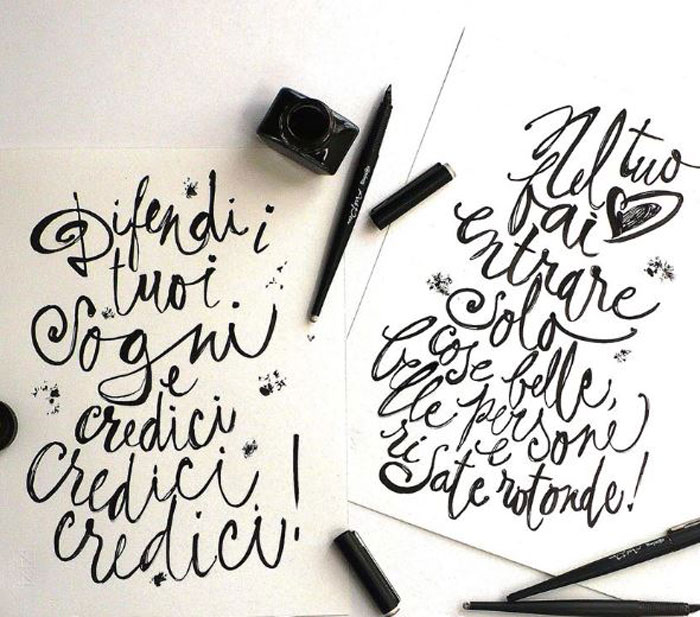 Difendi i
tuoi
Sogni
e
credici
Credici
credici!
Nel tuo
fai
entrare
Solo
cose belle,
belle persone
e
risate rotonde!